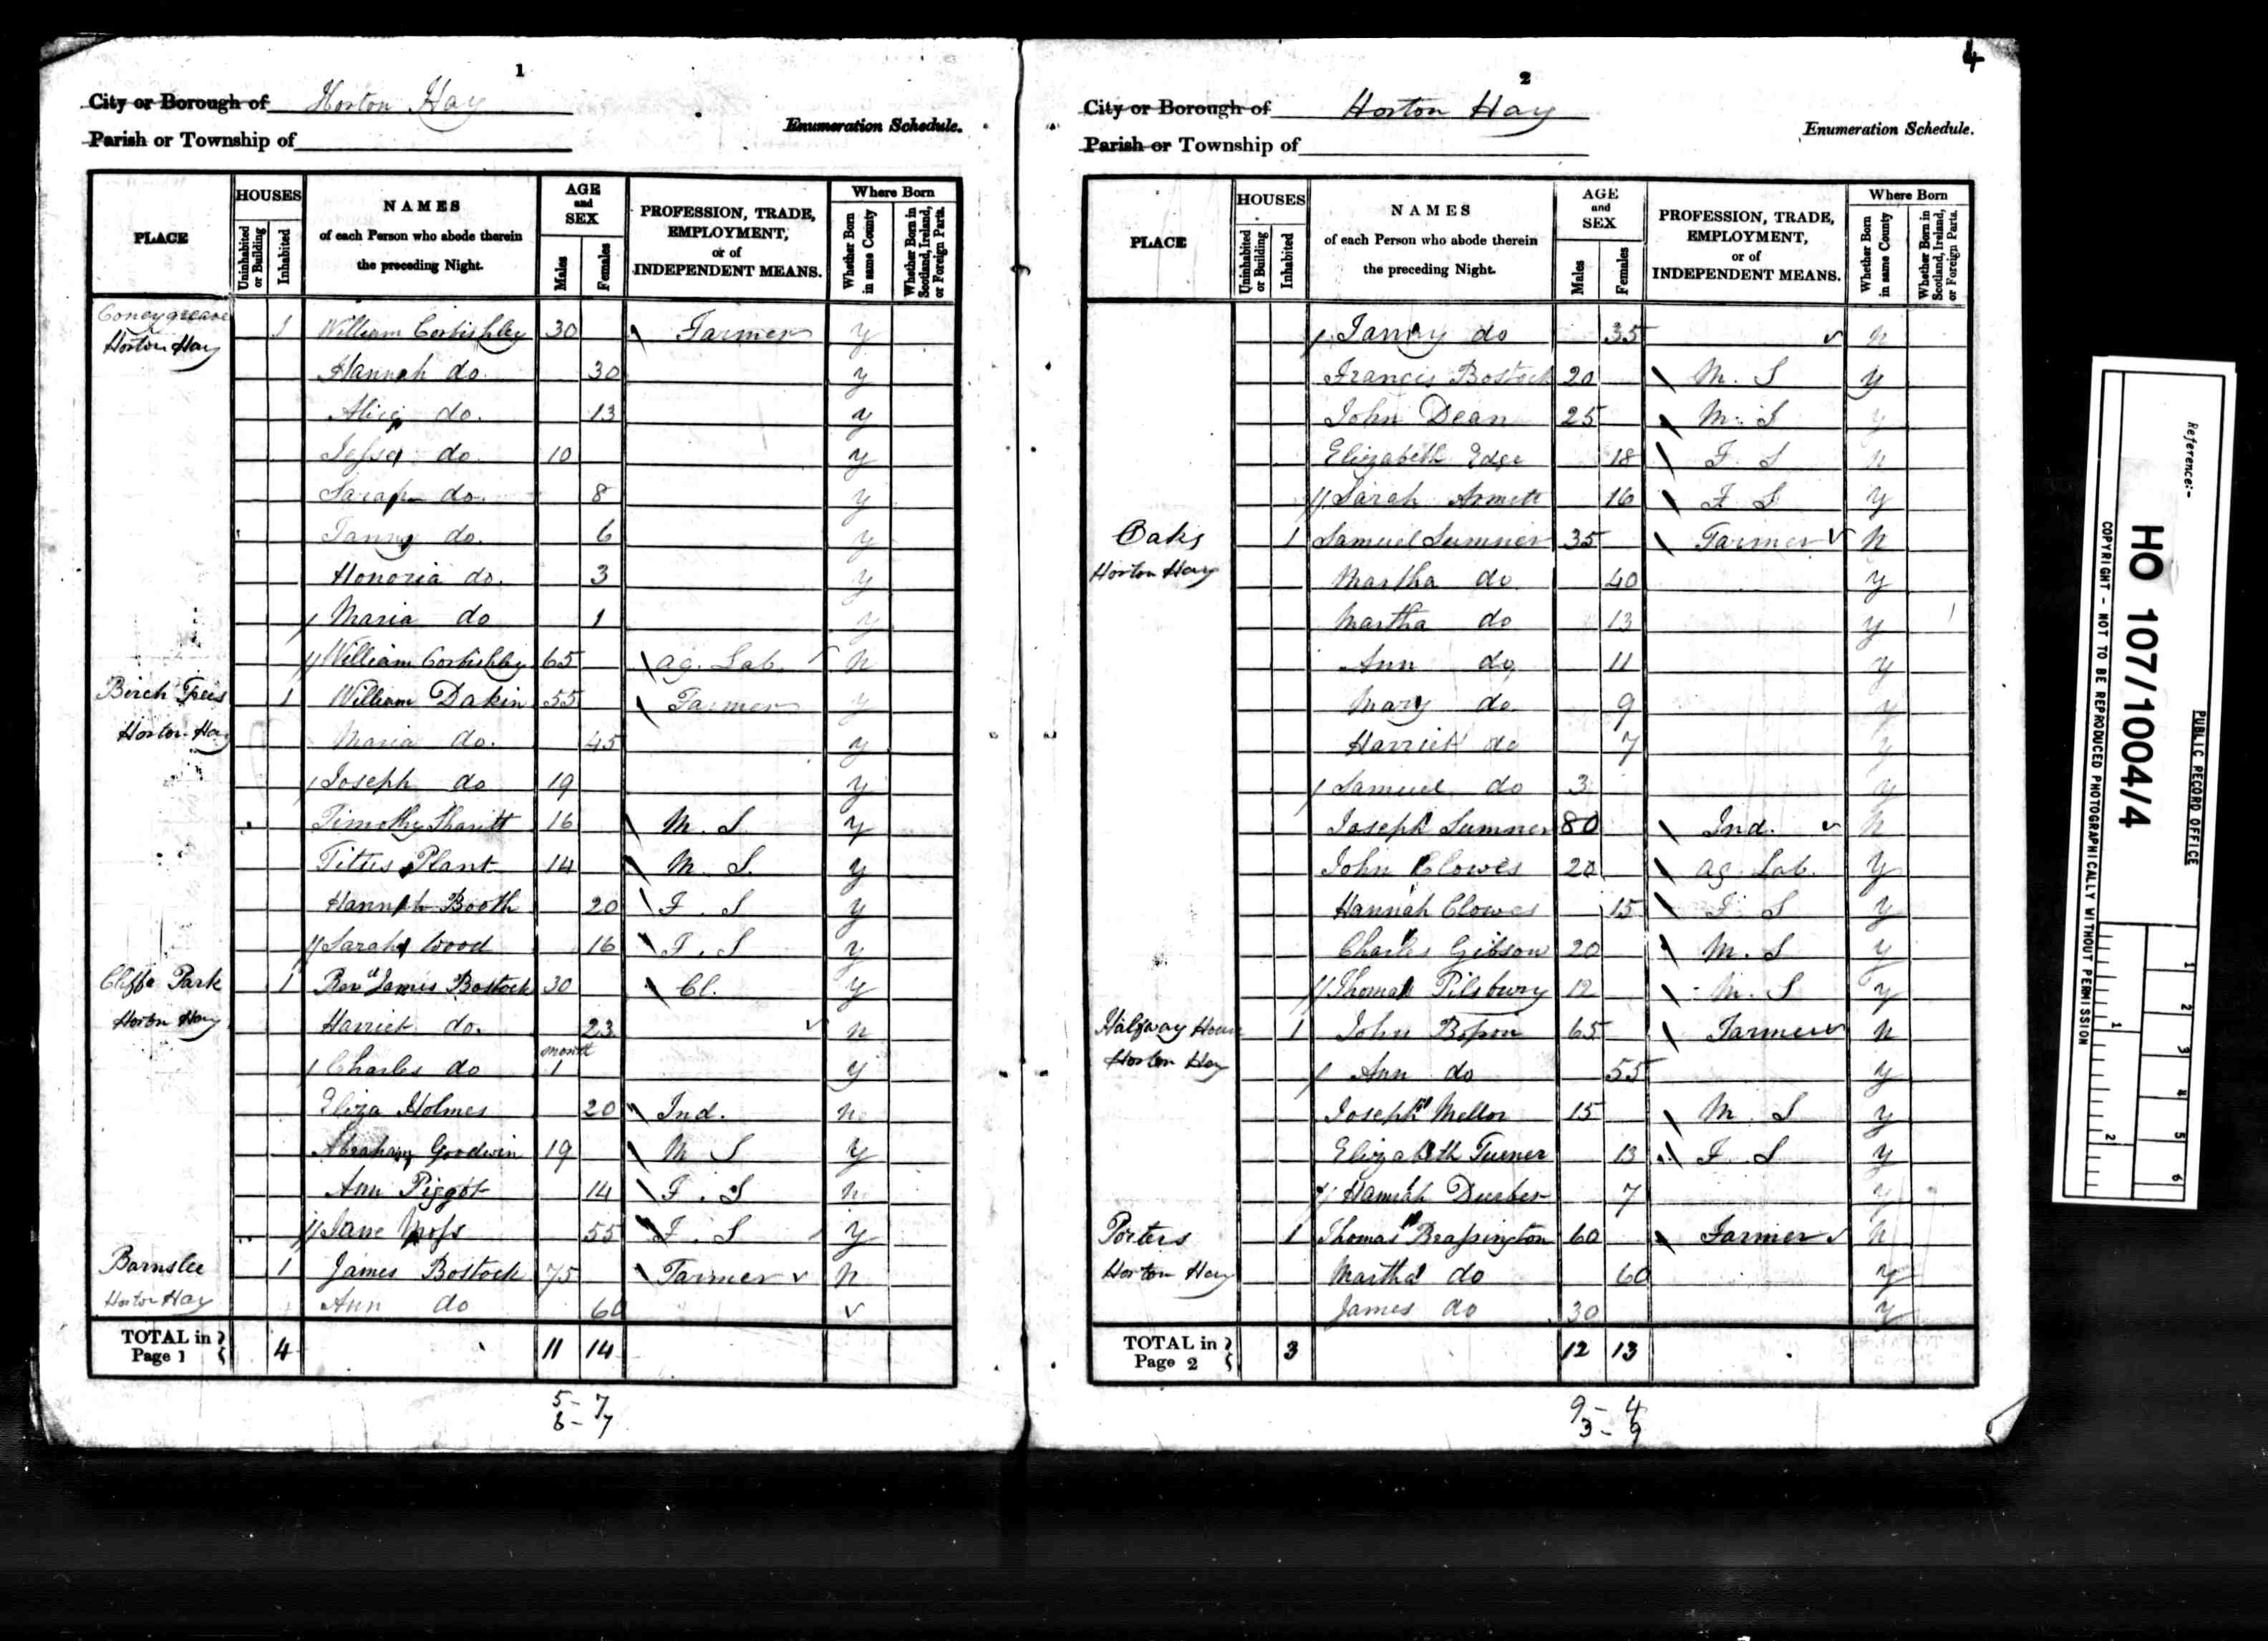 1
City or Borough of Horton Hay
Parish or Township of
Enumeration Schedule.
PLACE
HOUSES
Uninhabited or Building
Inhabited
NAMES
of each Person who abode therein
the preceding Night.
AGE and SEX
Males
Females
PROFESSION, TRADE, EMPLOYMENT, or of INDEPENDENT MEANS.
Where Born
Whether Born in same County
Whether Born in Scotland, Ireland, or Foreign Parts.
Coneygreave 1 William Corbishley 30 Farmer y
Horton Hay
Hannah do. 30 y
Alice do. 13 y
Jesse do. 10 y
Sarah do. 8 y
Fanny do. 6 y
Honoria do. 3 y
Maria do 1 y
William Corbishley 65 Ag. Lab. n
Birch Trees 1 William Dakin 55 Farmer y
Horton Hay Maria do. 45 y
Joseph do 19 y
Timothy 16 M. S y
Tittus Plant 14 M. S. y
Hannah Booth 20 F. S y
Sarah Wood 16 F. S y
Cliffe Park 1 Revd James Bostock 30 Cl. y
Horton Hay Harriet do. 23 n
month
Charles do 1 y
Eliza Holmes 20 Ind. n
Abraham Goodwin 19 M S y
Ann Piggot 14 F. S n
Jane Moss 55 F. S y
Barnslee 1 James Bostock 75 Farmer n
Horton Hay Ann do 60
TOTAL in Page 1 4 11 14
5 - 7
6 - 7
4
2
City or Borough of Horton Hay
Parish or Township of
Enumeration Schedule.
PLACE
HOUSES
Uninhabited or Building
Inhabited
NAMES
of each Person who abode therein
the preceding Night.
AGE and SEX
Males
Females
PROFESSION, TRADE, EMPLOYMENT, or of INDEPENDENT MEANS.
Where Born
Whether Born in same County
Whether Born in Scotland, Ireland, or Foreign Parts.
Fanny do 35 n
Francis Bostock 20 M. S y
John Dean 25 M. S y
Elizabeth Edge 18 F. S n
Sarah Armett 16 F. S y
Oaks 1 Samuel Sumner 35 Farmer n
Horton Hay Martha do 40 y
Martha do 13 y
Ann do 11 y
Mary do 9 y
Harriet do 7 y
Samuel do 3 y
Joseph Sumner 80 Ind. n
John Clowes 20 Ag. Lab. y
Hannah Clowes 15 F. S y
Charles Gibson 20 M. S y
Thomas Pilsbury 12 M. S y
Halfway House 1 John 65 Farmer n
Horton Hay Ann do 55 y
Joseph Mellor 15 M. S y
Elizabeth Turner 13 F. S y
Hannah 7 y
Porters 1 Thomas Brassington 60 Farmer n
Horton Hay Martha do 60 y
James do 30 y
TOTAL in Page 2 3 12 13
9 - 4
3 - 9
Reference:-
HO 107/1004/4
PUBLIC RECORD OFFICE
COPYRIGHT - NOT TO BE REPRODUCED PHOTOGRAPHICALLY WITHOUT PERMISSION
1
2
1
2
3
4
5
6